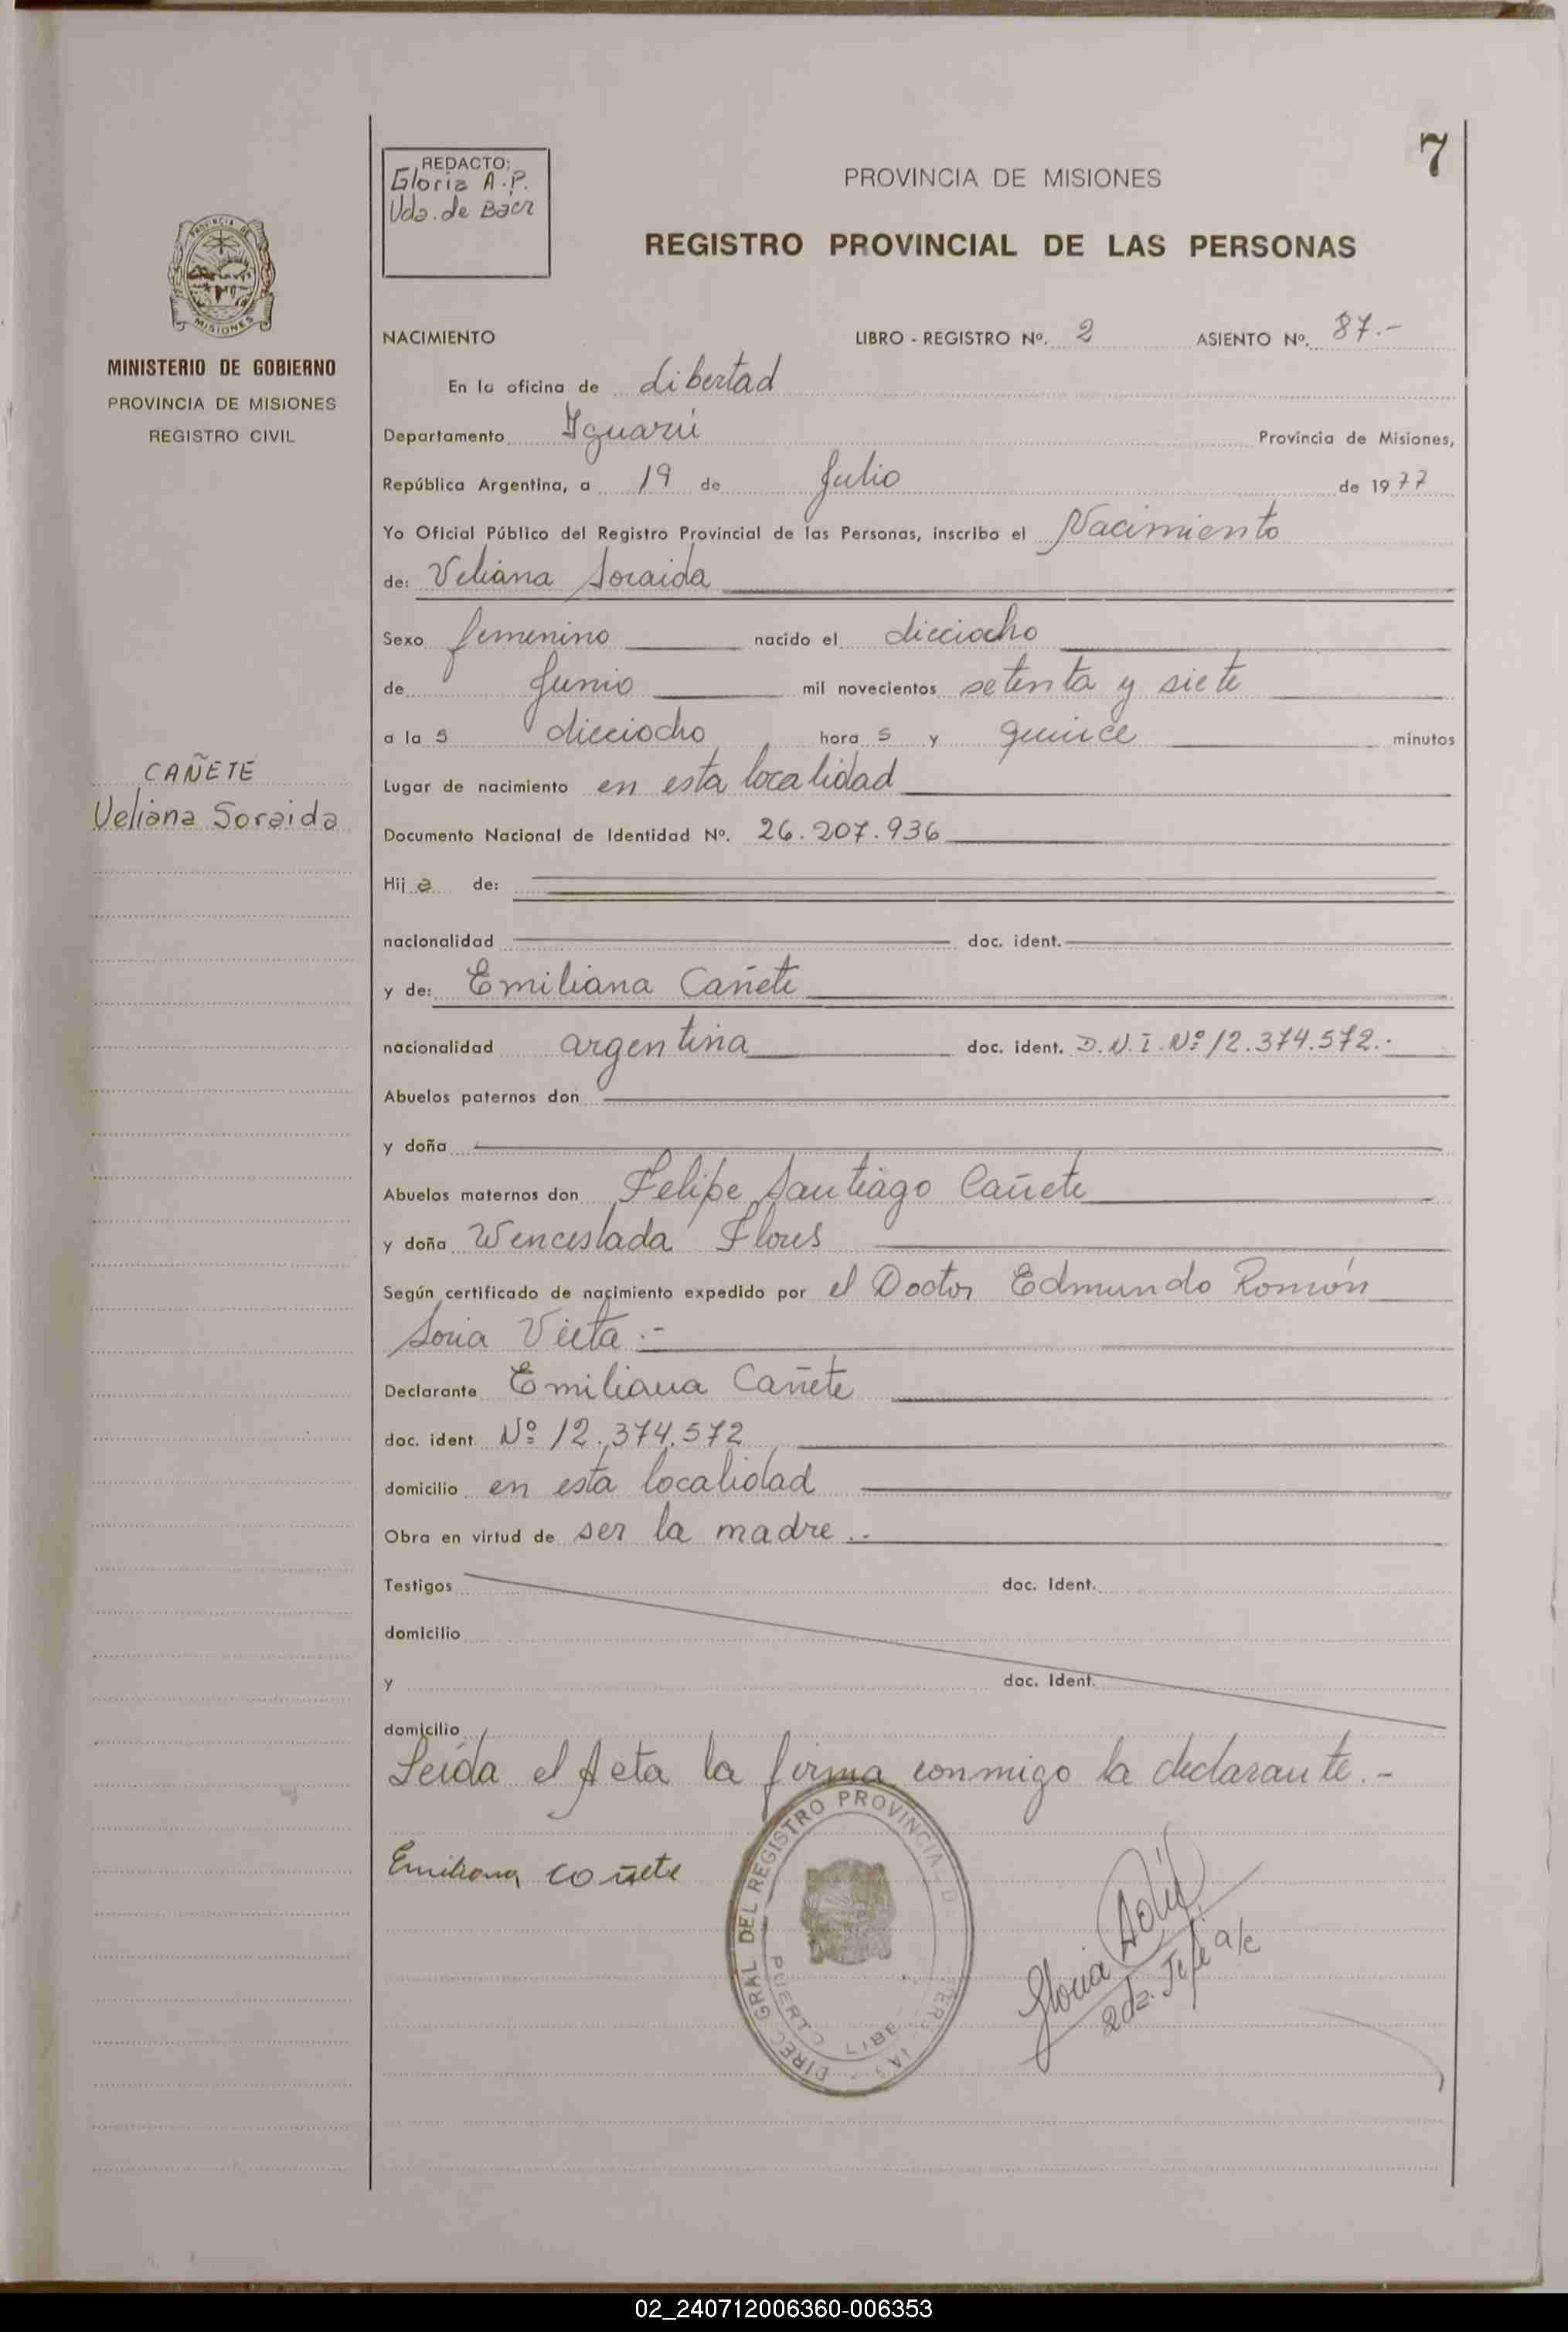 7
REDACTO:
Gloria A.P.
Vda. de Baez
PROVINCIA DE MISIONES
REGISTRO PROVINCIAL DE LAS PERSONAS
MINISTERIO DE GOBIERNO
PROVINCIA DE MISIONES
REGISTRO CIVIL
NACIMIENTO LIBRO - REGISTRO Nº. 2 ASIENTO Nº. 87.-
En la oficina de Libertad
Departamento Iguazú Provincia de Misiones,
República Argentina, a 19 de Julio de 1977
Yo Oficial Público del Registro Provincial de las Personas, inscribo el Nacimiento
de: Veliana Soraida
Sexo femenino nacido el dieciocho
de Junio mil novecientos setenta y siete
a la s dieciocho hora s y quince minutos
CAÑETE
Veliana Soraida
Lugar de nacimiento en esta localidad
Documento Nacional de Identidad Nº. 26.207.936
Hij a de:
nacionalidad doc. ident.
y de: Emiliana Cañete
nacionalidad argentina doc. ident. D.N.I. Nº 12.374.572.-
Abuelos paternos don
y doña
Abuelos maternos don Felipe Santiago Cañete
y doña Wenceslada Flores
Según certificado de nacimiento expedido por el Doctor Edmundo Román
Soria Vieta.-
Declarante Emiliana Cañete
doc. ident Nº 12.374.572
domicilio en esta localidad
Obra en virtud de ser la madre.-
Testigos doc. Ident.
domicilio
y doc. Ident.
domicilio
Leída el Acta la firma conmigo la declarante.-
Emiliana Cañete
DIREC GRAL DEL REGISTRO PROVINCIAL D
PUERTO LIBE
Gloria
2da. Jefe a/c
02_240712006360-006353